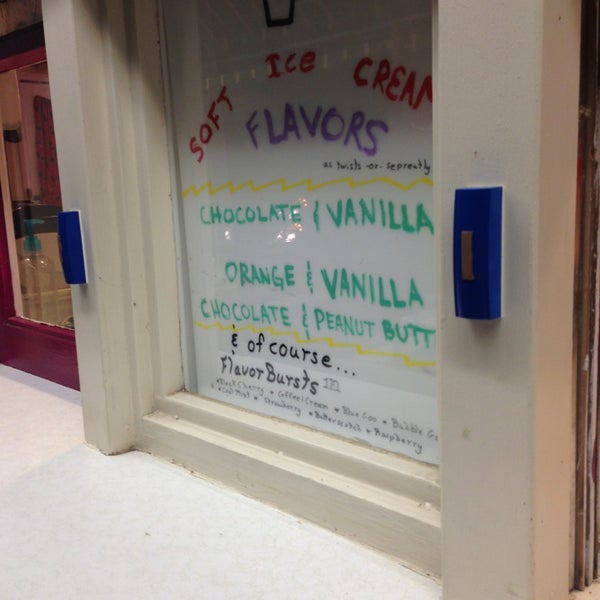 SOFT ICE CREAM
FLAVORS
as twists -or- sepreatly
CHOCOLATE & VANILLA
ORANGE & VANILLA
CHOCOLATE & PEANUT BUTT
& of course...
FlavorBursts TM
*Black Cherry * Coffee Cream * Blue Goo * Bubble G
* Cool Mint * Strawberry * Butterscotch * Raspberry